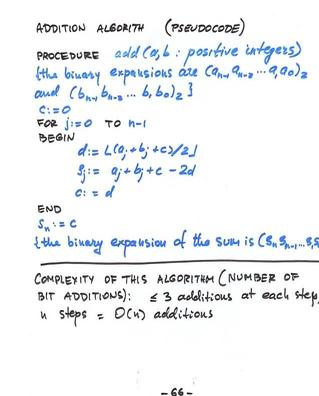 ADDITION ALGORITH (PSEUDOCODE)
PROCEDURE add (a, b : positive integers)
{the binary expansions are (aₙ₋₁ aₙ₋₂ ... a₁ a₀)₂
and (bₙ₋₁ bₙ₋₂ ... b₁ b₀)₂}
c:=0
FOR j:=0 TO n-1
BEGIN
d:= ⌊(aⱼ+bⱼ+c)/2⌋
sⱼ:= aⱼ+bⱼ+c-2d
c:=d
END
sₙ:=c
{the binary expansion of the sum is (sₙ sₙ₋₁...s₁
COMPLEXITY OF THIS ALGORITHM (NUMBER OF
BIT ADDITIONS): ≤ 3 additions at each step,
n steps = O(n) additions
-66-